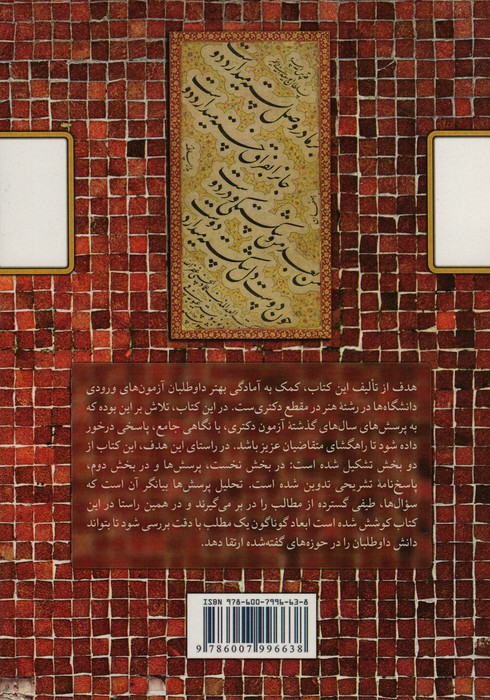 بر ما در وصل بسته میدارد دوست
جانم بفراق خسته میدارد دوست
من بعد من و شکستگی
چون دوست دل شکسته میدارد دوست
هدف از تألیف این کتاب، کمک به آمادگی بهتر داوطلبان آزمون‌های ورودی
دانشگاه‌ها در رشتهٔ هنر در مقطع دکتری‌ست. در این کتاب، تلاش بر این بوده که
به پرسش‌های سال‌های گذشتهٔ آزمون دکتری، با نگاهی جامع، پاسخی درخور
داده شود تا راهگشای متقاضیان عزیز باشد. در راستای این هدف، این کتاب از
دو بخش تشکیل شده است: در بخش نخست، پرسش‌ها و در بخش دوم،
پاسخ‌نامهٔ تشریحی تدوین شده است. تحلیل پرسش‌ها بیانگر آن است که
سؤال‌ها، طیفی گسترده از مطالب را در بر می‌گیرند و در همین راستا در این
کتاب کوشش شده است ابعاد گوناگون یک مطلب با دقت بررسی شود تا بتواند
دانش داوطلبان را در حوزه‌های گفته‌شده ارتقا دهد.
ISBN 978-600-7996-63-8
9 786007 996638